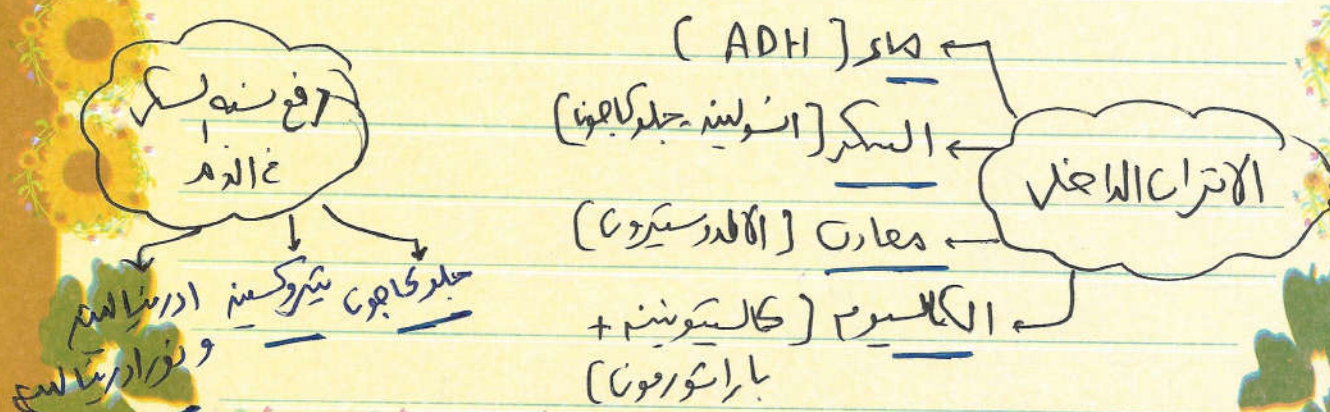 الاتزان الداخلى
ماء (ADH)
السكر (انسولين - جلوكاجون)
معادن (الالدوستيرون)
الكالسيوم (كالسيتونين +
باراثورمون)
رفع نسبه السكر
فى الدم
جلوكاجون
ثيروكسين
ادرينالين
و نورادرينالين